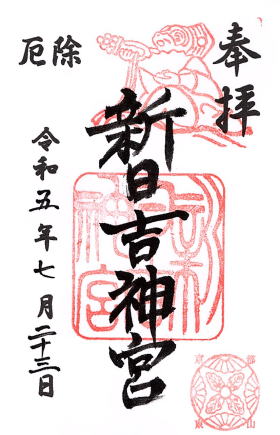 奉拝
新日吉神宮
厄除
令和五年七月二十三日
京都
東山